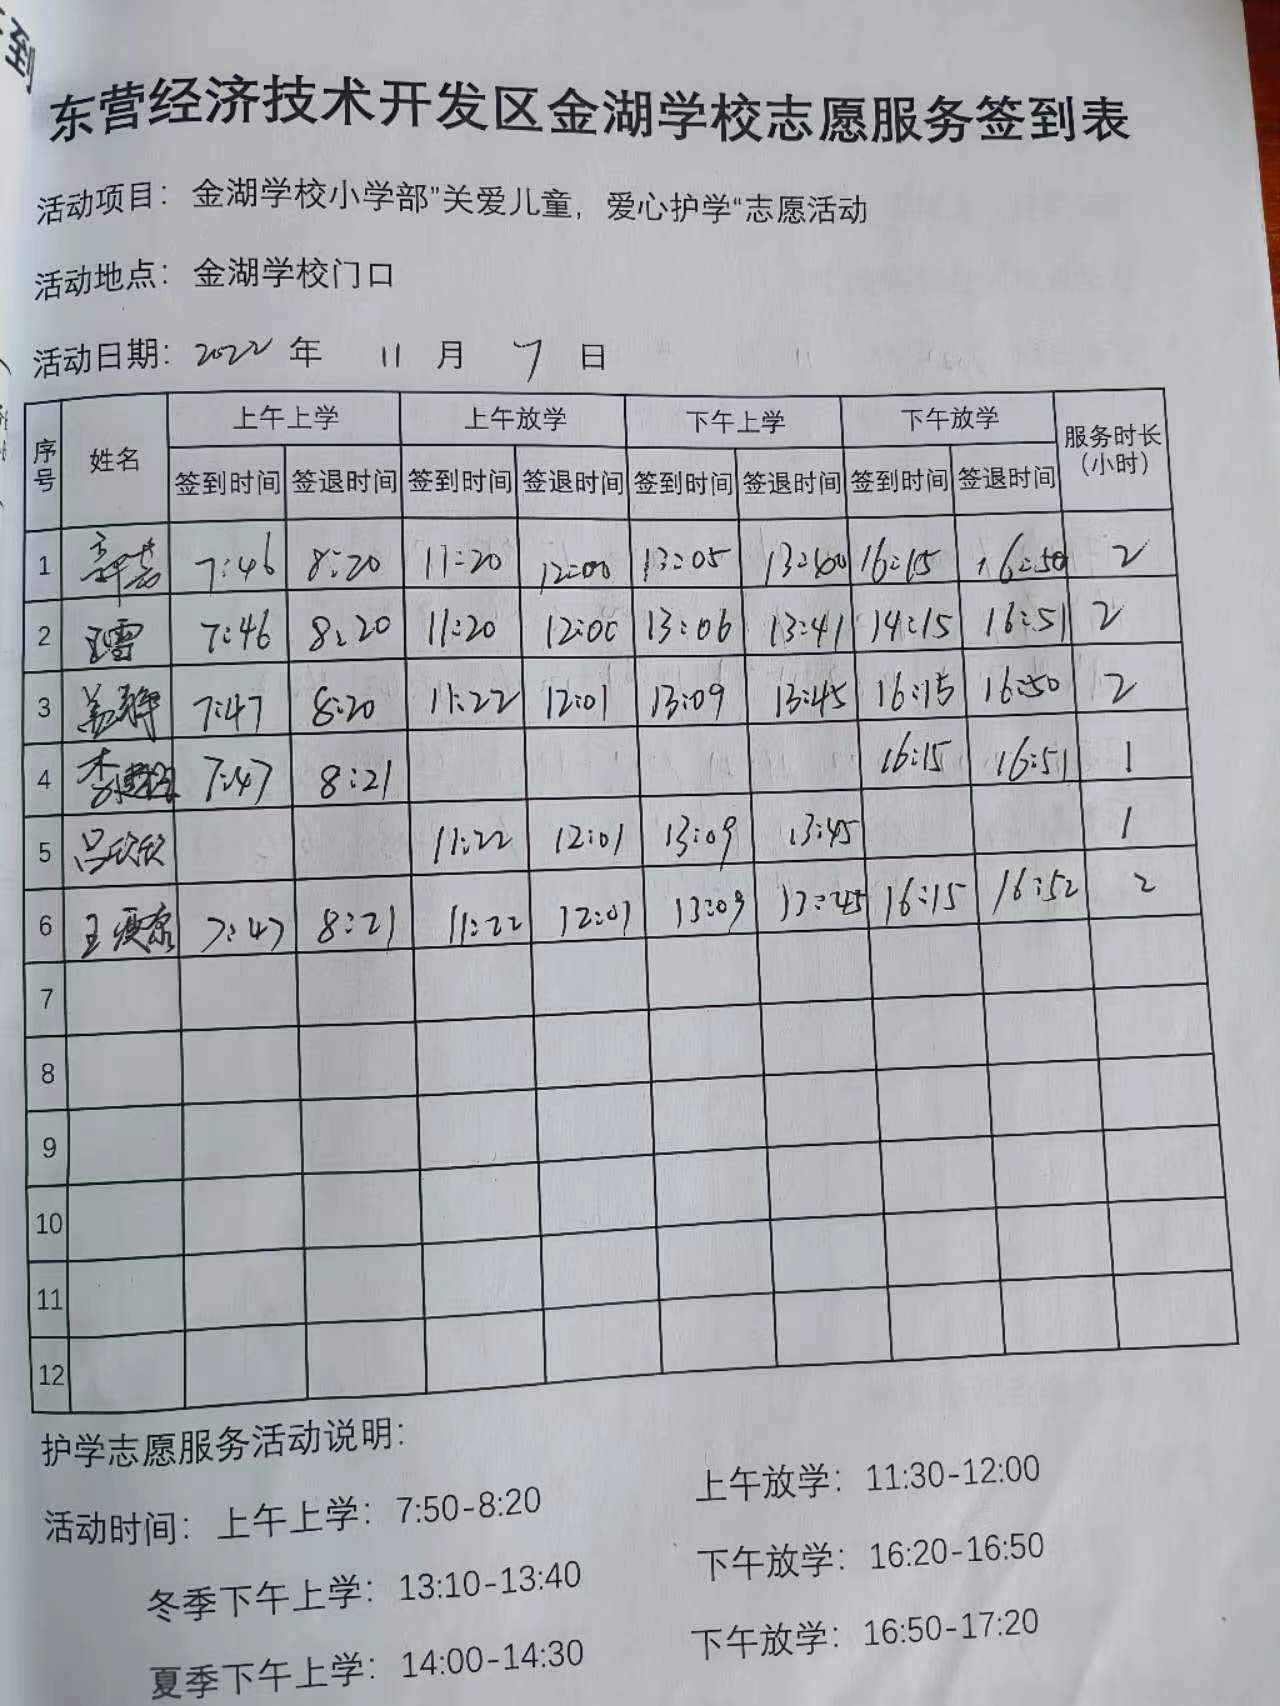 到
东营经济技术开发区金湖学校志愿服务签到表
活动项目：金湖学校小学部"关爱儿童，爱心护学"志愿活动
活动地点：金湖学校门口
活动日期：2022 年 11 月 7 日
序号 姓名 上午上学 上午放学 下午上学 下午放学 服务时长（小时）
签到时间 签退时间 签到时间 签退时间 签到时间 签退时间 签到时间 签退时间
1 7:46 8:20 11:20 12:00 13:05 16:15 16:50 2
2 王雷 7:46 8:20 11:20 12:00 13:06 13:41 14:15 16:51 2
3 7:47 8:20 11:22 12:01 13:09 13:45 16:15 16:50 2
4 李 7:47 8:21 16:15 16:51 1
5 吕欣欣 11:22 12:01 13:09 13:45 1
6 王 7:47 8:21 11:22 12:01 13:09 13:45 16:15 16:52 2
7
8
9
10
11
12
护学志愿服务活动说明：
活动时间：上午上学：7:50-8:20 上午放学：11:30-12:00
冬季下午上学：13:10-13:40 下午放学：16:20-16:50
夏季下午上学：14:00-14:30 下午放学：16:50-17:20